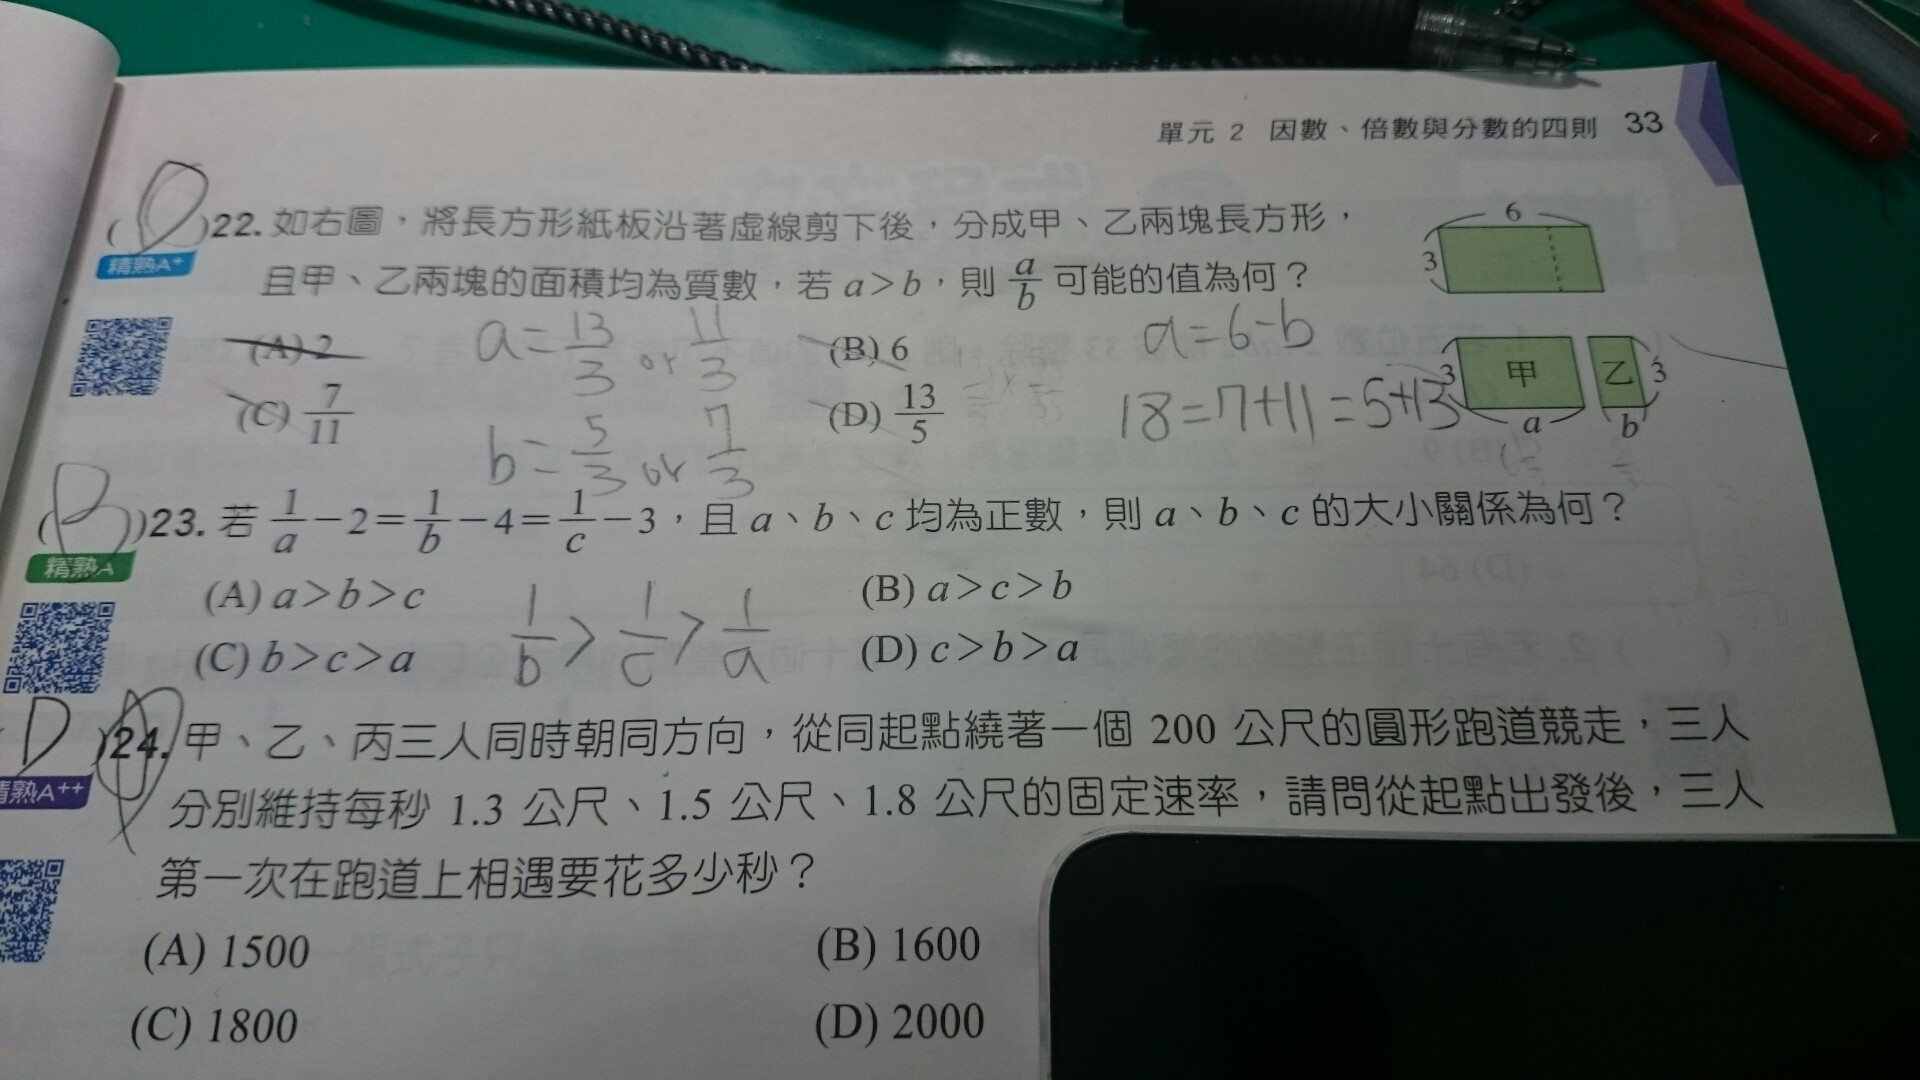 單元 2 因數、倍數與分數的四則 33
(D)22. 如右圖,將長方形紙板沿著虛線剪下後,分成甲、乙兩塊長方形,
精熟A+
且甲、乙兩塊的面積均為質數,若 a>b,則 a/b 可能的值為何?
6
3
(A) 2
(B) 6
(C) 7/11
(D) 13/5
a=13/3 or 11/3
b=5/3 or 7/3
a=6-b
18=7+11=5+13
3 甲 乙 3
a b
(B)23. 若 1/a-2=1/b-4=1/c-3,且 a、b、c 均為正數,則 a、b、c 的大小關係為何?
精熟A
(A) a>b>c
(B) a>c>b
(C) b>c>a
(D) c>b>a
1/b>1/c>1/a
D )24. 甲、乙、丙三人同時朝同方向,從同起點繞著一個 200 公尺的圓形跑道競走,三人
精熟A++
分別維持每秒 1.3 公尺、1.5 公尺、1.8 公尺的固定速率,請問從起點出發後,三人
第一次在跑道上相遇要花多少秒?
(A) 1500
(B) 1600
(C) 1800
(D) 2000